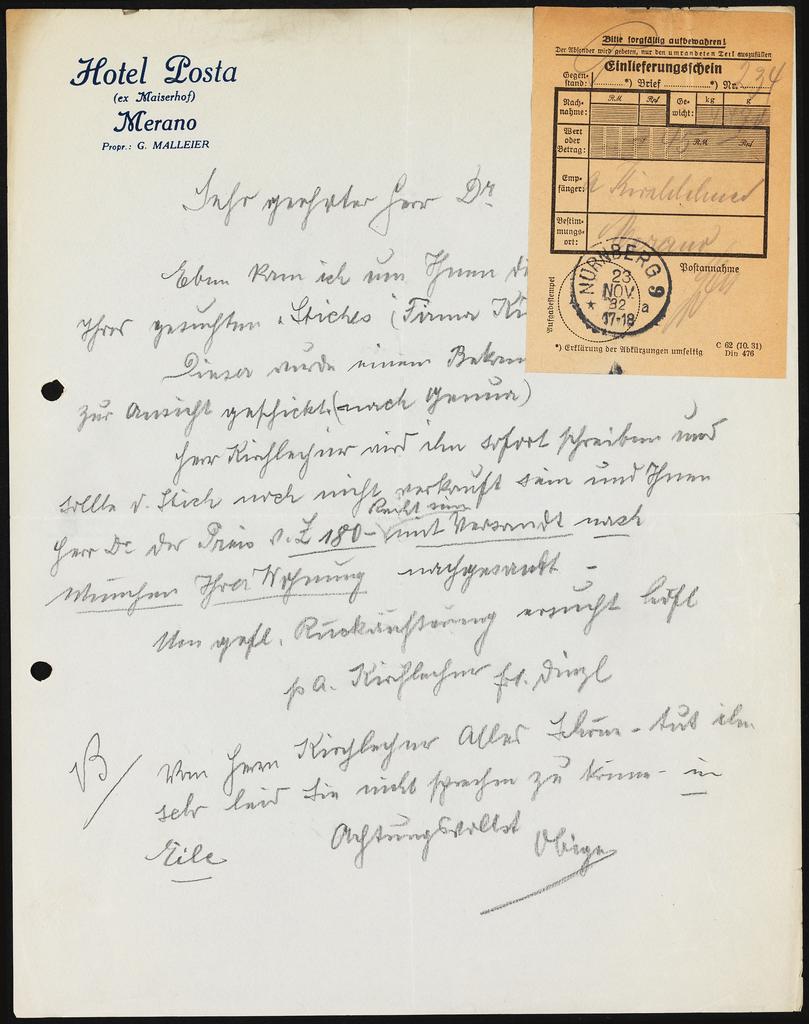 Hotel Posta
(ex Maiserhof)
Merano
Propr.: G. MALLEIER
Bitte sorgfältig aufbewahren!
Der Absender wird gebeten, nur den umrandeten Teil auszufüllen
Einlieferungsschein
Gegenstand: *) Brief *) Nr. 234
Nachnahme: RM Rpf Gewicht: kg g
Wert oder Betrag: RM Rpf
Empfänger: Kirchlechner
Bestimmungsort: Merano
Postannahme
Aufgabestempel
NÜRNBERG 9
23
NOV.
32
17-18
a
*) Erklärung der Abkürzungen umseitig
C 62 (10. 31)
Din 476
Sehr geehrter Herr Dr
Eben kam ich um Ihnen
Ihres gesuchten Stiches (Firma Ki
Dieser wurde einem Bekan
zur Ansicht geschickt (nach Genua)
Herr Kirchlechner wird ihm sofort schreiben und
sollte d. Stich noch nicht verkauft sein und Ihnen
Recht sein
Herr Dr der Preis v. L 180- mit Versandt nach
München Ihrer Wohnung nachgesandt -
Um gefl. Rückäusserung ersucht höfl
p a. Kirchlechner
Von Herrn Kirchlechner Alles Schöne - tut ihm
sehr leid Sie nicht sprechen zu können - in
Eile
Achtungsvollst
Obiger